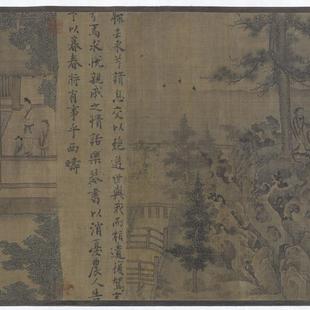 歸去來兮請息交以絕遊世與我而相遺復駕言
兮焉求悅親戚之情話樂琴書以消憂農人告
予以暮春將有事乎西疇